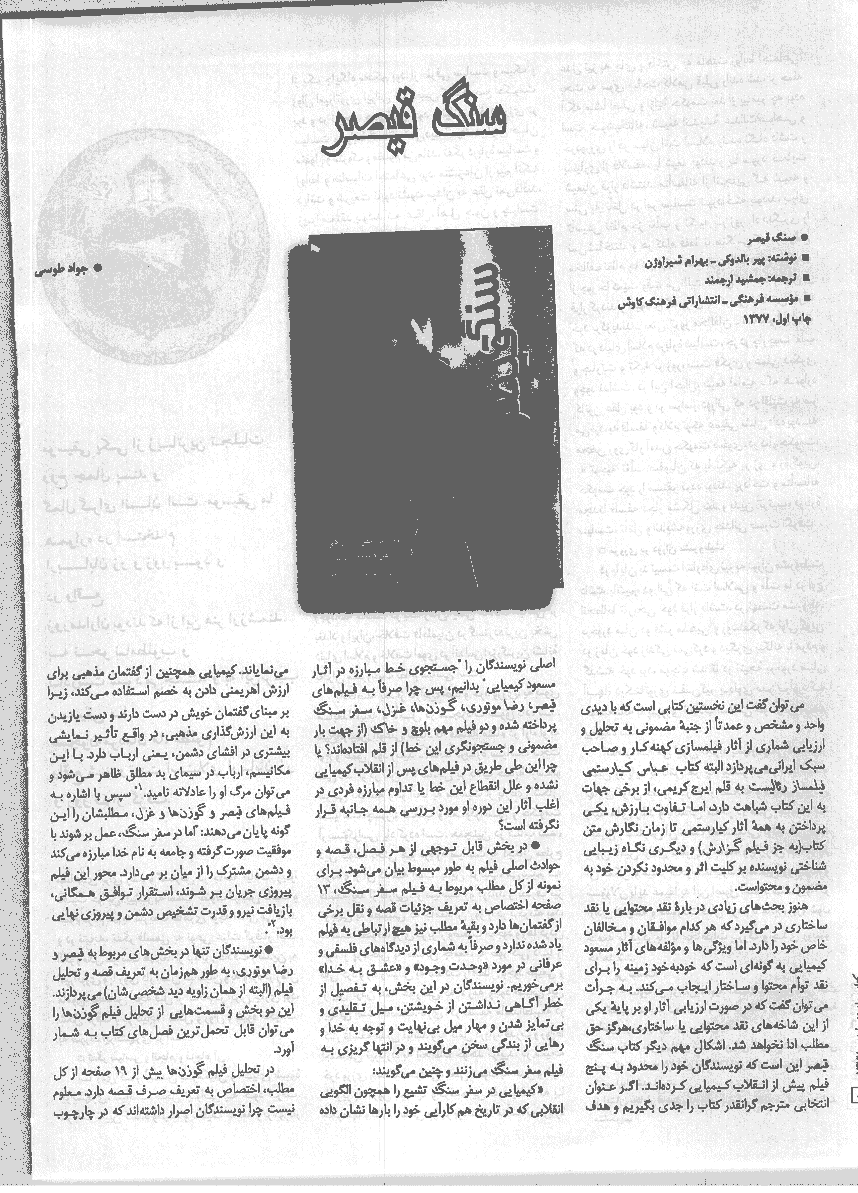 سنگ قیصر
● سنگ قیصر
■ نوشته: پیر بالدوکی ـ بهرام شیراوژن
■ ترجمه: جمشید ارجمند
■ مؤسسه فرهنگی ـ انتشاراتی فرهنگ کاوش
چاپ اول، ۱۳۷۷
● جواد طوسی
سنگ
قیصر
می‌توان گفت این نخستین کتابی است که با دیدی
واحد و مشخص و عمدتاً از جنبهٔ مضمونی به تحلیل و
ارزیابی شماری از آثار فیلمسازی کهنه‌کار و صاحب
سبک ایرانی‌می‌پردازد البته کتاب عباس کیارستمی
فیلمساز رئالیست به قلم ایرج کریمی، از برخی جهات
به این کتاب شباهت دارد. اما تفاوت بارزش، یکی
پرداختن به همهٔ آثار کیارستمی تا زمان نگارش متن
کتاب(به جز فیلم گزارش) و دیگری نگاه زیبایی
شناختی نویسنده بر کلیت اثر و محدود نکردن خود به
مضمون و محتواست.
هنوز بحث‌های زیادی در بارهٔ نقد محتوایی یا نقد
ساختاری در می‌گیرد که هر کدام موافقان و مخالفان
خاص خود را دارد. اما ویژگی‌ها و مؤلفه‌های آثار مسعود
کیمیایی به گونه‌ای است که خودبه‌خود زمینه را برای
نقد توأم محتوا و ساختار ایجاب می‌کند. به جرأت
می‌توان گفت که در صورت ارزیابی آثار او بر پایهٔ یکی
از این شاخه‌های نقد محتوایی یا ساختاری،هرگز حق
مطلب ادا نخواهد شد. اشکال مهم دیگر کتاب سنگ
قیصر این است که نویسندگان خود را محدود به پنج
فیلم پیش از انقلاب کیمیایی کرده‌اند. اگر عنوان
انتخابی مترجم گرانقدر کتاب را جدی بگیریم و هدف
اصلی نویسندگان را "جستجوی خط مبارزه در آثار
مسعود کیمیایی" بدانیم، پس چرا صرفاً به فیلم‌های
قیصر، رضا موتوری، گوزن‌ها، غزل، سفر سنگ
پرداخته شده و دو فیلم مهم بلوچ و خاک (از جهت بار
مضمونی و جستجوگری این خط) از قلم افتاده‌اند؟ یا
چرا این طی طریق در فیلم‌های پس از انقلاب کیمیایی
نشده و علل انقطاع این خط یا تداوم مبارزه فردی در
اغلب آثار این دوره او مورد بررسی همه جانبه قرار
نگرفته است؟
● در بخش قابل توجهی از هر فصل، قصه و
حوادث اصلی فیلم به طور مبسوط بیان می‌شود. برای
نمونه از کل مطلب مربوط به فیلم سفر سنگ، ۱۳
صفحه اختصاص به تعریف جزئیات قصه و نقل برخی
از گفتمان‌ها دارد و بقیهٔ مطلب نیز هیچ ارتباطی به فیلم
یاد شده ندارد و صرفاً به شماری از دیدگاه‌های فلسفی و
عرفانی در مورد «وحدت وجود» و «عشق به خدا»
برمی‌خوریم. نویسندگان در این بخش، به تفصیل از
خطر آگاهی نداشتن از خویشتن، میل تقلیدی و
بی‌تمایز شدن و مهار میل بی‌نهایت و توجه به خدا و
رهایی از بندگی سخن می‌گویند و در انتها گریزی به
فیلم سفر سنگ می‌زنند و چنین می‌گویند:
«کیمیایی در سفر سنگ تشیع را همچون الگویی
انقلابی که در تاریخ هم کارآیی خود را بارها نشان داده
می‌نمایاند. کیمیایی همچنین از گفتمان مذهبی برای
ارزش اهریمنی دادن به خصم استفاده می‌کند، زیرا
بر مبنای گفتمان خویش در دست دارند و دست یازیدن
به این ارزش‌گذاری مذهبی، در واقع تأثیر نمایشی
بیشتری در افشای دشمن، یعنی ارباب دارد. با این
مکانیسم، ارباب در سیمای بد مطلق ظاهر می‌شود و
می‌توان مرگ او را عادلانه نامید.۱» سپس با اشاره به
فیلم‌های قیصر و گوزن‌ها و غزل، مطلبشان را این
گونه پایان می‌دهند: «اما در سفر سنگ، عمل بر شوند با
موفقیت صورت گرفته و جامعه به نام خدا مبارزه می‌کند
و دشمن مشترک را از میان بر می‌دارد. محور این فیلم
پیروزی جریان بر شوند، استقرار توافق همگانی،
بازیافت نیرو و قدرت تشخیص دشمن و پیروزی نهایی
بود.۲»
● نویسندگان تنها در بخش‌های مربوط به قیصر و
رضا موتوری، به طور هم‌زمان به تعریف قصه و تحلیل
فیلم (البته از همان زاویه دید شخصی‌شان) می‌پردازند.
این دو بخش و قسمت‌هایی از تحلیل فیلم گوزن‌ها را
می‌توان قابل تحمل‌ترین فصل‌های کتاب به شمار
آورد.
در تحلیل فیلم گوزن‌ها بیش از ۱۹ صفحه از کل
مطلب، اختصاص به تعریف صرف قصه دارد. معلوم
نیست چرا نویسندگان اصرار داشته‌اند که در چارچوب